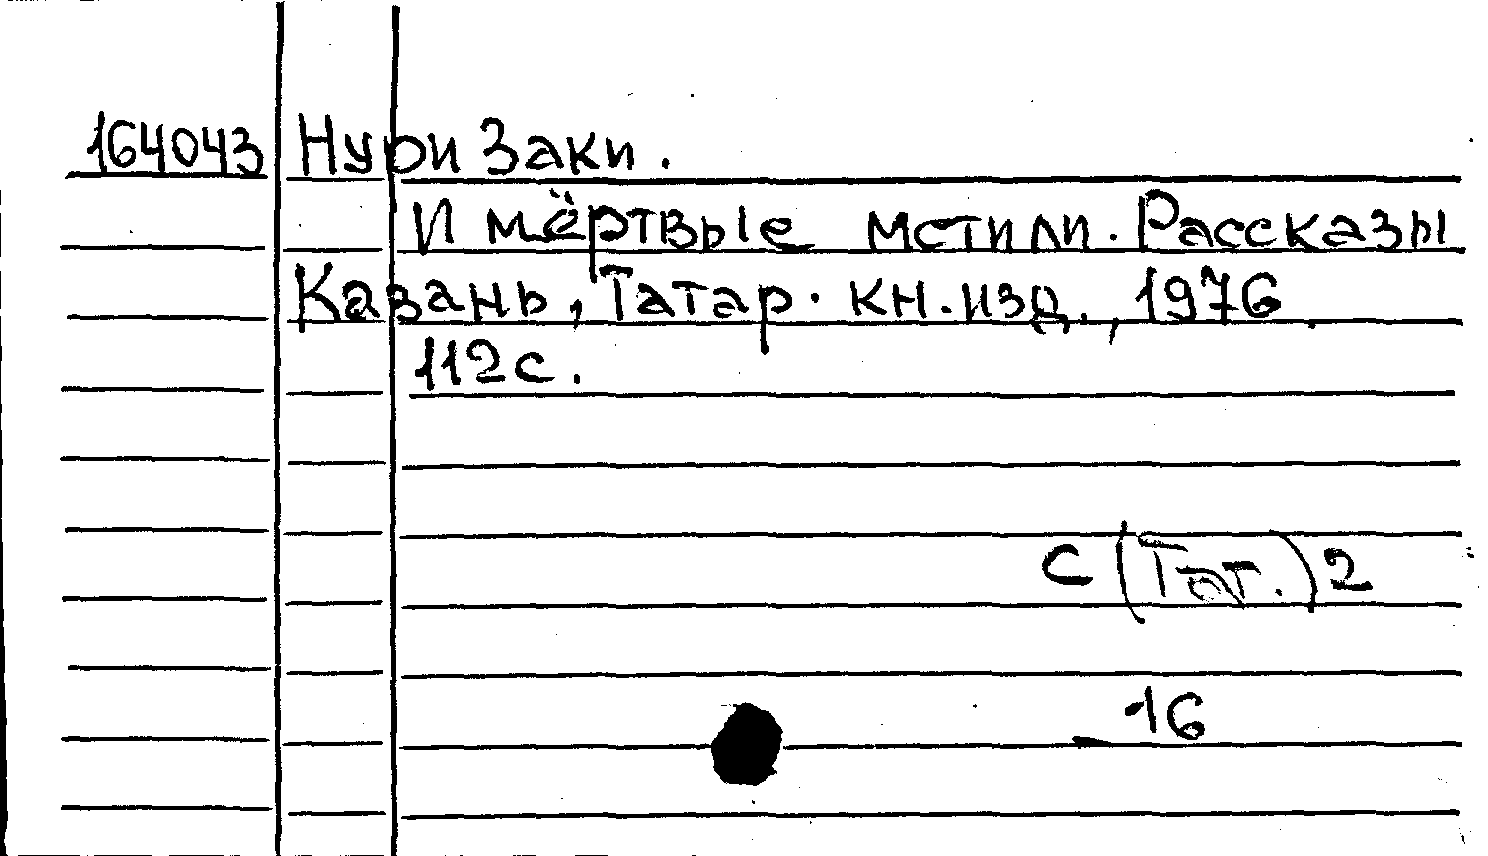 164043 Нури Заки.
И мёртвые мстили. Рассказы
Казань, Татар. кн. изд., 1976.
112 с.
С (Тат.) 2
16